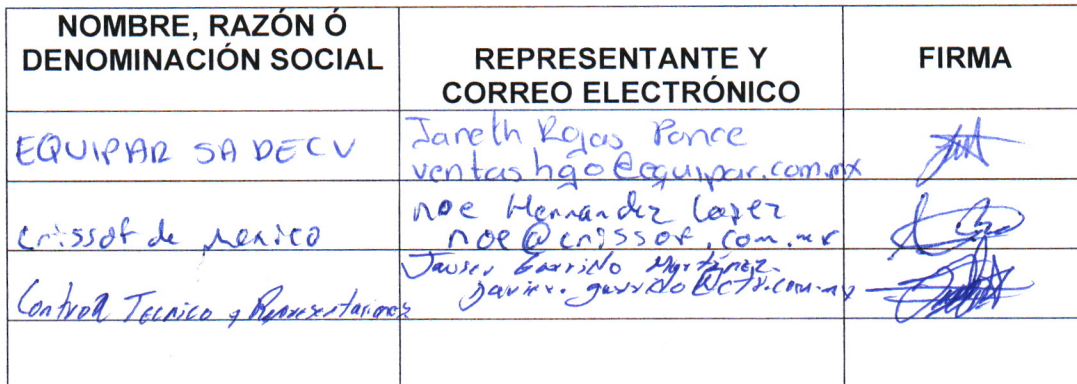 NOMBRE, RAZÓN Ó
DENOMINACIÓN SOCIAL
REPRESENTANTE Y
CORREO ELECTRÓNICO
FIRMA
EQUIPAR SA DE CV
Janeth Rojas Ponce
ventashgo@equipar.com.mx
Crissof de Mexico
noe Hernandez Lopez
noe@crissof.com.mx
Control Tecnico y Representaciones
Javier Garrido Martínez
javier.garrido@ctr.com.mx